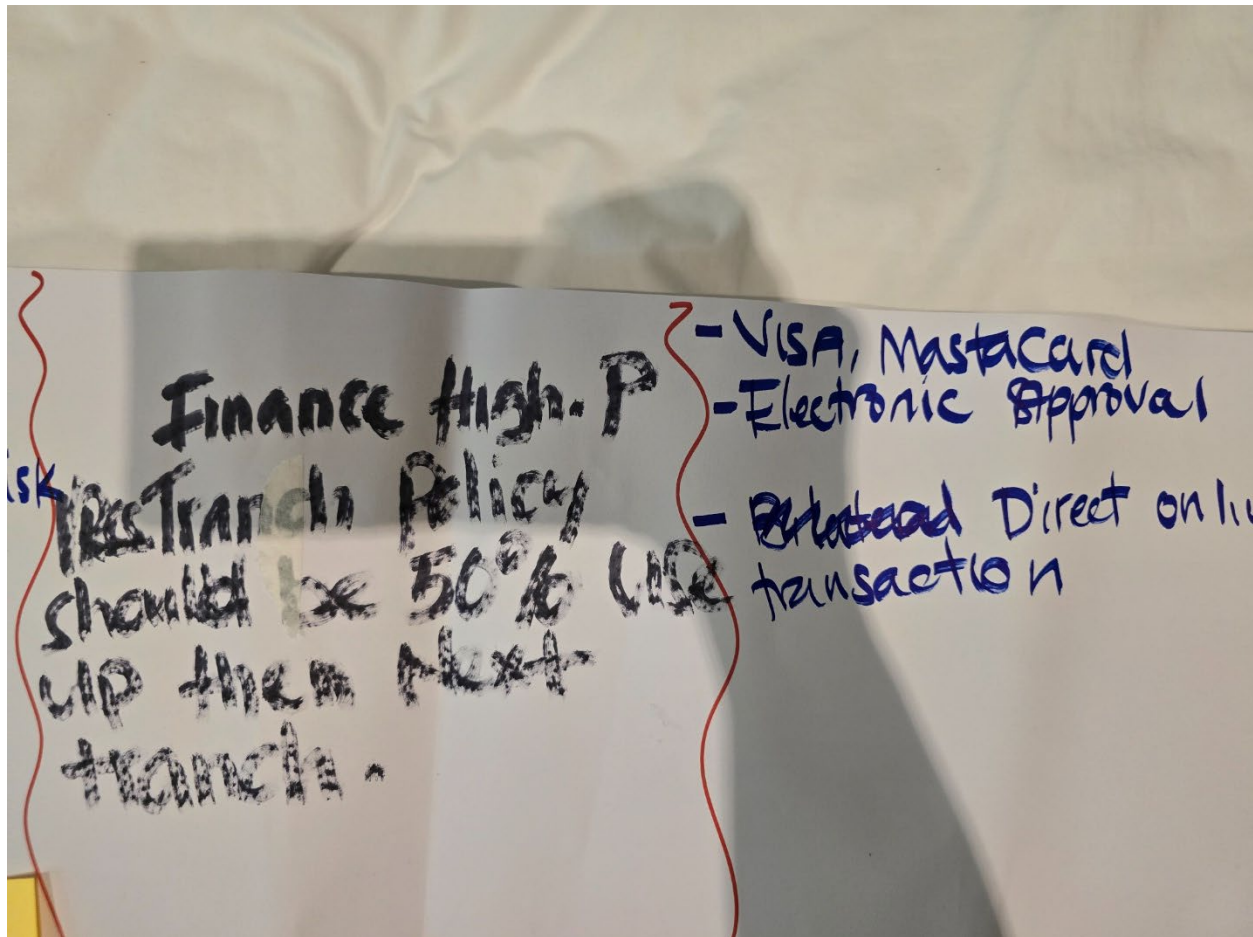 Finance High. P
Tranch Policy
should be 50% use
up them Next
tranch.
- VISA, Mastacard
- Electronic Approval
- Direct onli
transaction
isk